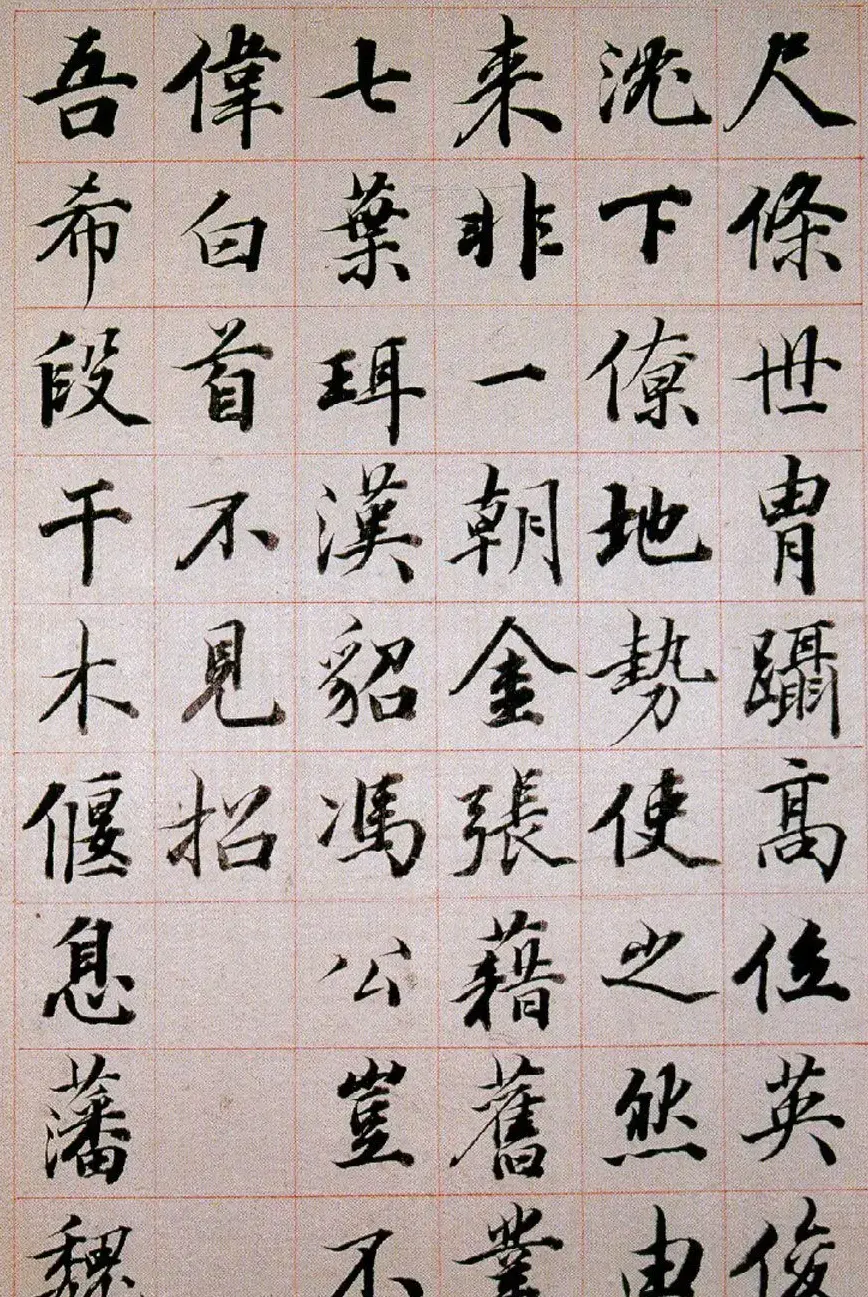 尺條世胄躡高位英俊
沈下僚地勢使之然由
来非一朝金張藉舊業
七葉珥漢貂馮公豈不
偉白首不見招
吾希段干木偃息藩魏